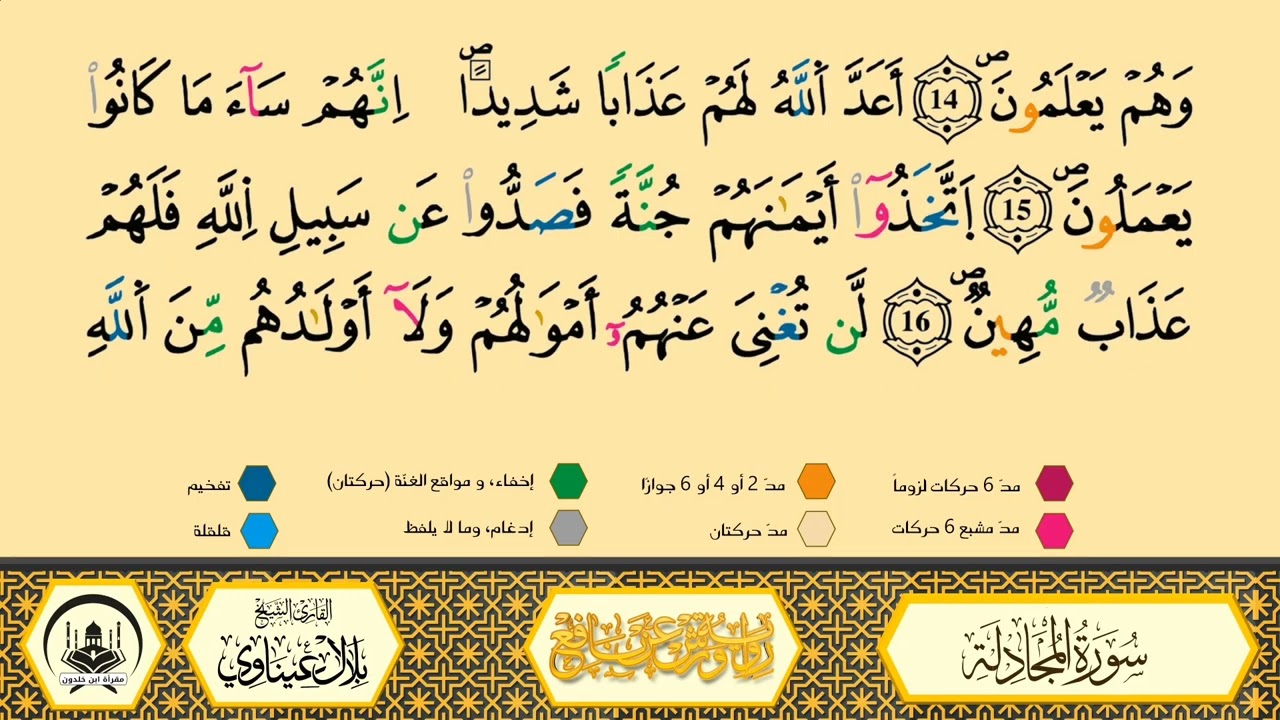 وَهُمْ يَعْلَمُونَۖ 14 أَعَدَّ اَ۬للَّهُ لَهُمْ عَذَاباٗ شَدِيداًۖ اِنَّهُمْ سَآءَ مَا كَانُواْ
يَعْمَلُونَۖ 15 اَ۪تَّخَذُوٓاْ أَيْمَٰنَهُمْ جُنَّةٗ فَصَدُّواْ عَن سَبِيلِ اِ۬للَّهِ فَلَهُمْ
عَذَابٞ مُّهِينٞۖ 16 لَّن تُغْنِيَ عَنْهُمُۥٓ أَمْوَٰلُهُمْ وَلَآ أَوْلَٰدُهُم مِّنَ اَ۬للَّهِ
مدّ 6 حركات لزوماً مدّ 2 أو 4 أو 6 جوازًا إخفاء، و مواقع الغنّة (حركتان) تفخيم
مدّ مشبع 6 حركات مدّ حركتان إدغام، وما لا يلفظ قلقلة
سُورَةُ المُجَادلَة
رواية ورش عن نافع
القارئ الشيخ
بلال عيناوي
مقرأة ابن خلدون